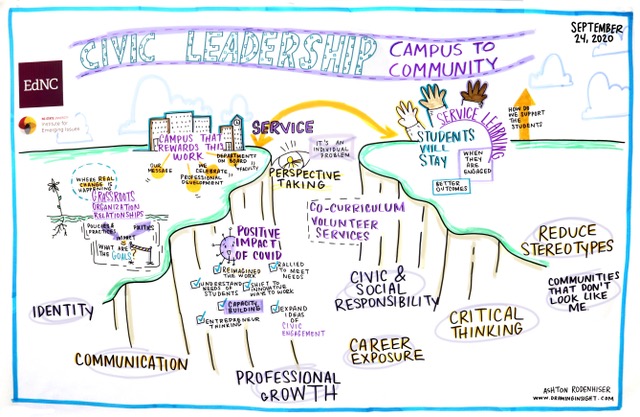 CIVIC LEADERSHIP
CAMPUS TO
COMMUNITY
SEPTEMBER
24, 2020
EdNC
Institute for
Emerging Issues
CAMPUS THAT
REWARDS THIS
WORK
OUR
MESSAGE
WE
CELEBRATE
PROFESSIONAL
DEVELOPMENT
DEPARTMENTS
ON BOARD
FACULTY
SERVICE
IT'S AN
INDIVIDUAL
PROBLEM
PERSPECTIVE
TAKING
SERVICE LEARNING
STUDENTS
WILL
STAY
WHEN
THEY ARE
ENGAGED
BETTER
OUTCOMES
HOW DO
WE SUPPORT
THE
STUDENTS
WHERE REAL
CHANGE IS
HAPPENING
GRASSROOTS
ORGANIZATION
RELATIONSHIPS
POLICIES &
PRACTICES
IMPACT
WHAT ARE
THE GOALS
POSITIVE
IMPACT
OF COVID
REIMAGINED
THE WORK
RALLIED
TO MEET
NEEDS
UNDERSTAND
NEEDS OF
STUDENTS
SHIFT TO
INNOVATIVE
WAY TO WORK
CAPACITY
BUILDING
ENTREPRENEUR
THINKING
EXPAND
IDEAS OF
CIVIC
ENGAGEMENT
CO-CURRICULUM
VOLUNTEER
SERVICES
IDENTITY
COMMUNICATION
PROFESSIONAL
GROWTH
CIVIC &
SOCIAL
RESPONSIBILITY
CAREER
EXPOSURE
CRITICAL
THINKING
REDUCE
STEREOTYPES
COMMUNITIES
THAT DON'T
LOOK LIKE
ME.
ASHTON RODENHISER
WWW.DRAWINGINSIGHT.COM